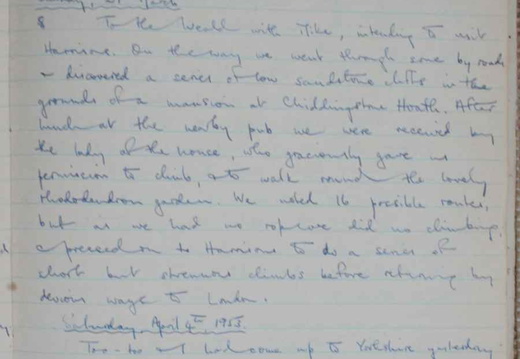 Sunday,
8 To the Weald with Mike, intending to visit
Harrisons. On the way we went through some by roads
& discovered a series of low sandstone cliffs in the
grounds of a mansion at Chiddingstone Hoath. After
lunch at the nearby pub we were received by
the lady of the house, who graciously gave us
permission to climb, & to walk round the lovely
rhododendron garden. We noted 16 possible routes,
but as we had no rope we did no climbing,
& pressed on to Harrisons to do a series of
short but strenuous climbs before returning by
devious ways to London.
Saturday, April 4th 1953
I had come up to Yorkshire yesterday